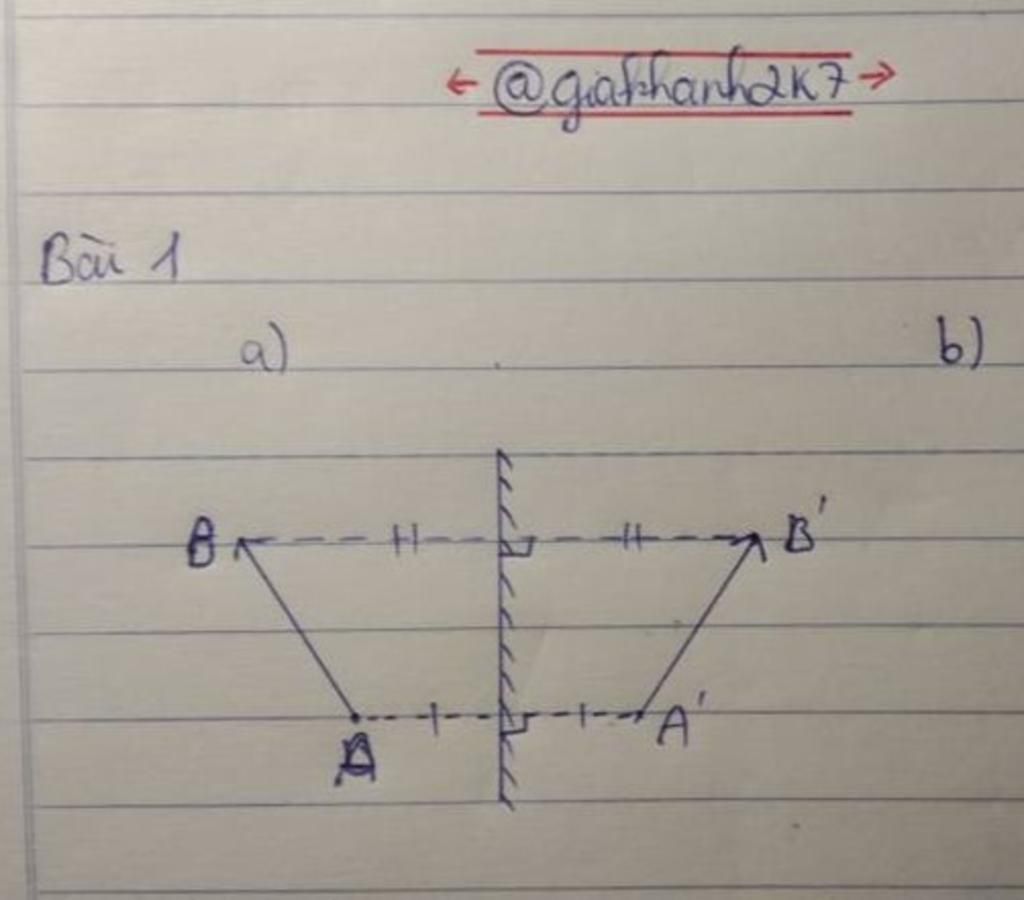 ← @giakhanh2k7 →
Bài 1
a) b)
B B'
A A'